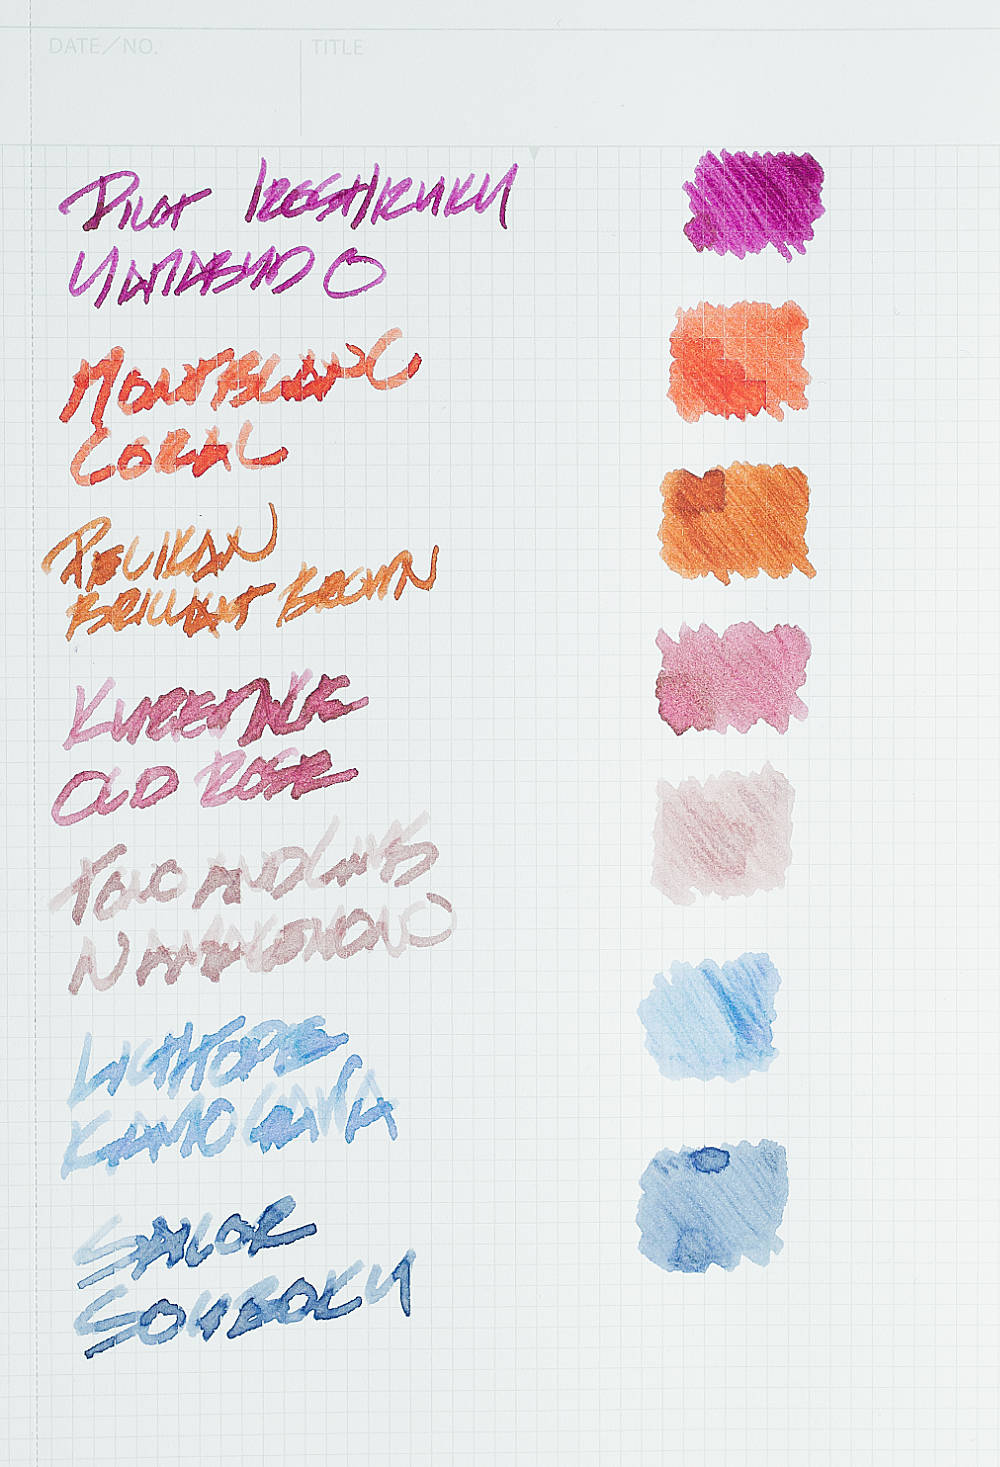 DATE/NO. TITLE
PILOT IROSHIZUKU
YAMABUDO
MONTBLANC
CORAL
PELIKAN
BRILLIANT BROWN
KURETAKE
OLD ROSE
TONO AND LIMS
NAMAKEMONO
LIGHTOPE
KAMOGAWA
SAILOR
SOUBOKU